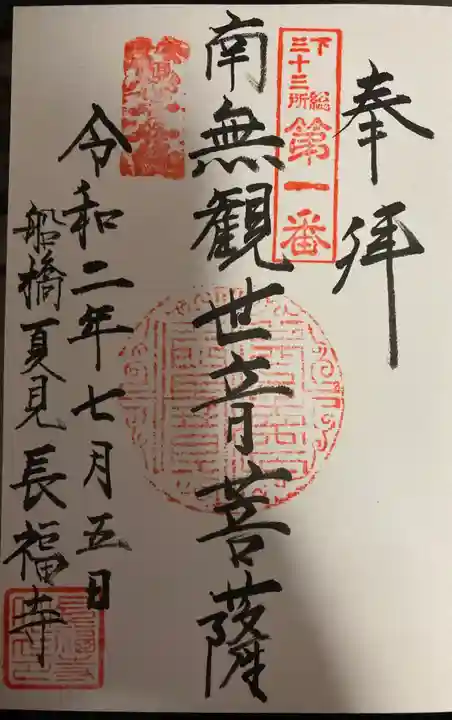 奉拝
下総
三十三所
第一番
南無観世音菩薩
令和二年七月五日
船橋夏見 長福寺